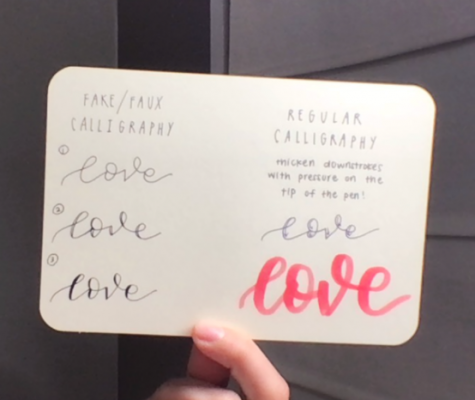 FAKE/FAUX
CALLIGRAPHY
1
love
2
love
3
love
REGULAR
CALLIGRAPHY
thicken downstrokes
with pressure on the
tip of the pen!
love
love